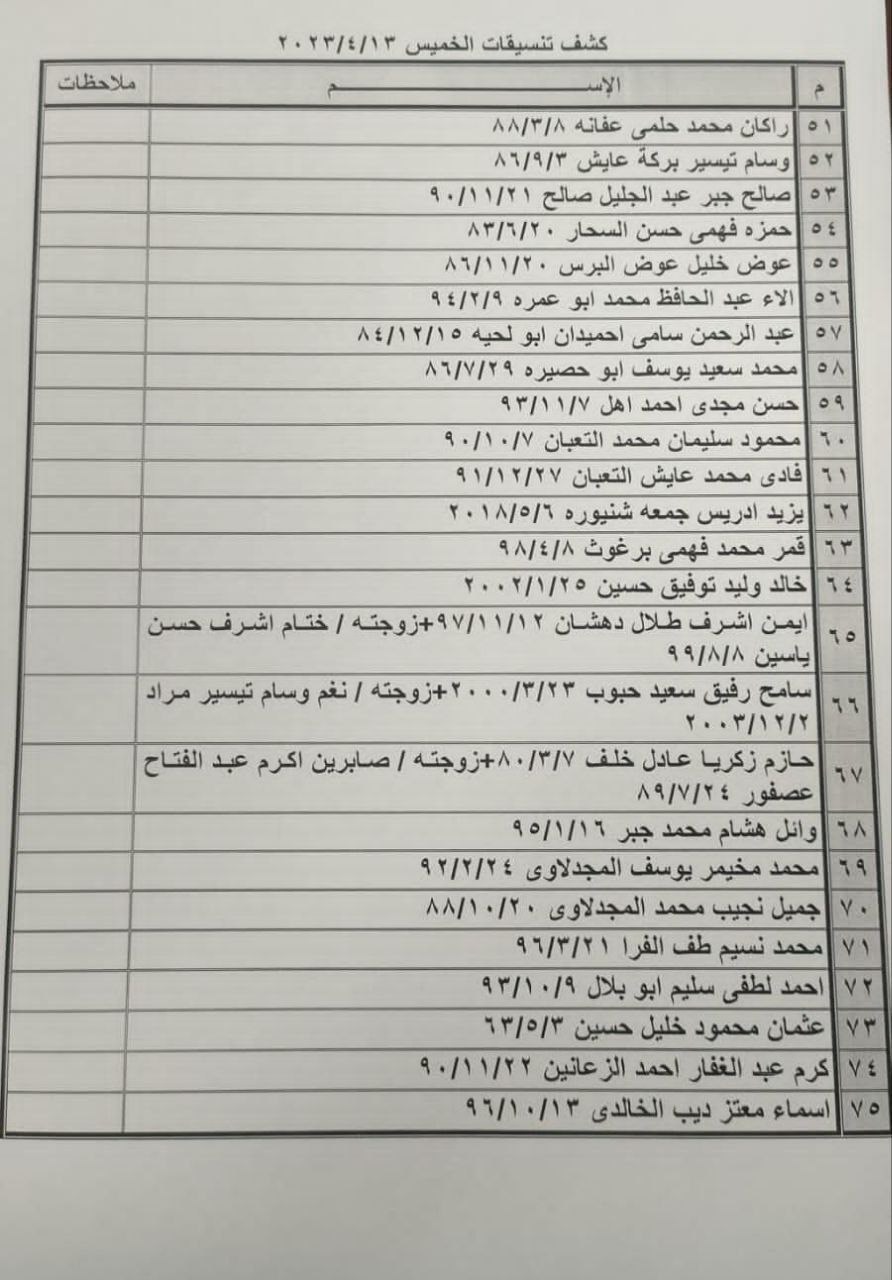 كشف تنسيقات الخميس ٢٠٢٣/٤/١٣
م الإســـــــم ملاحظات
٥١ راكان محمد حلمى عفانه ٨٨/٣/٨
٥٢ وسام تيسير بركة عايش ٨٦/٩/٣
٥٣ صالح جبر عبد الجليل صالح ٩٠/١١/٢١
٥٤ حمزه فهمى حسن السحار ٨٣/٦/٢٠
٥٥ عوض خليل عوض البرس ٨٦/١١/٢٠
٥٦ الاء عبد الحافظ محمد ابو عمره ٩٤/٢/٩
٥٧ عبد الرحمن سامى احميدان ابو لحيه ٨٤/١٢/١٥
٥٨ محمد سعيد يوسف ابو حصيره ٨٦/٧/٢٩
٥٩ حسن مجدى احمد اهل ٩٣/١١/٧
٦٠ محمود سليمان محمد التعبان ٩٠/١٠/٧
٦١ فادى محمد عايش التعبان ٩١/١٢/٢٧
٦٢ يزيد ادريس جمعه شنيوره ٢٠١٨/٥/٦
٦٣ قمر محمد فهمى برغوث ٩٨/٤/٨
٦٤ خالد وليد توفيق حسين ٢٠٠٢/١/٢٥
٦٥ ايمن اشرف طلال دهشان ٩٧/١١/١٢+زوجته / ختام اشرف حسن
ياسين ٩٩/٨/٨
٦٦ سامح رفيق سعيد حبوب ٢٠٠٠/٣/٢٣+زوجته / نغم وسام تيسير مراد
٢٠٠٣/١٢/٢
٦٧ حازم زكريا عادل خلف ٨٠/٣/٧+زوجته / صابرين اكرم عبد الفتاح
عصفور ٨٩/٧/٢٤
٦٨ وائل هشام محمد جبر ٩٥/١/١٦
٦٩ محمد مخيمر يوسف المجدلاوى ٩٢/٢/٢٤
٧٠ جميل نجيب محمد المجدلاوى ٨٨/١٠/٢٠
٧١ محمد نسيم طف الفرا ٩٦/٣/٢١
٧٢ احمد لطفى سليم ابو بلال ٩٣/١٠/٩
٧٣ عثمان محمود خليل حسين ٦٣/٥/٣
٧٤ كرم عبد الغفار احمد الزعانين ٩٠/١١/٢٢
٧٥ اسماء معتز ديب الخالدى ٩٦/١٠/١٣